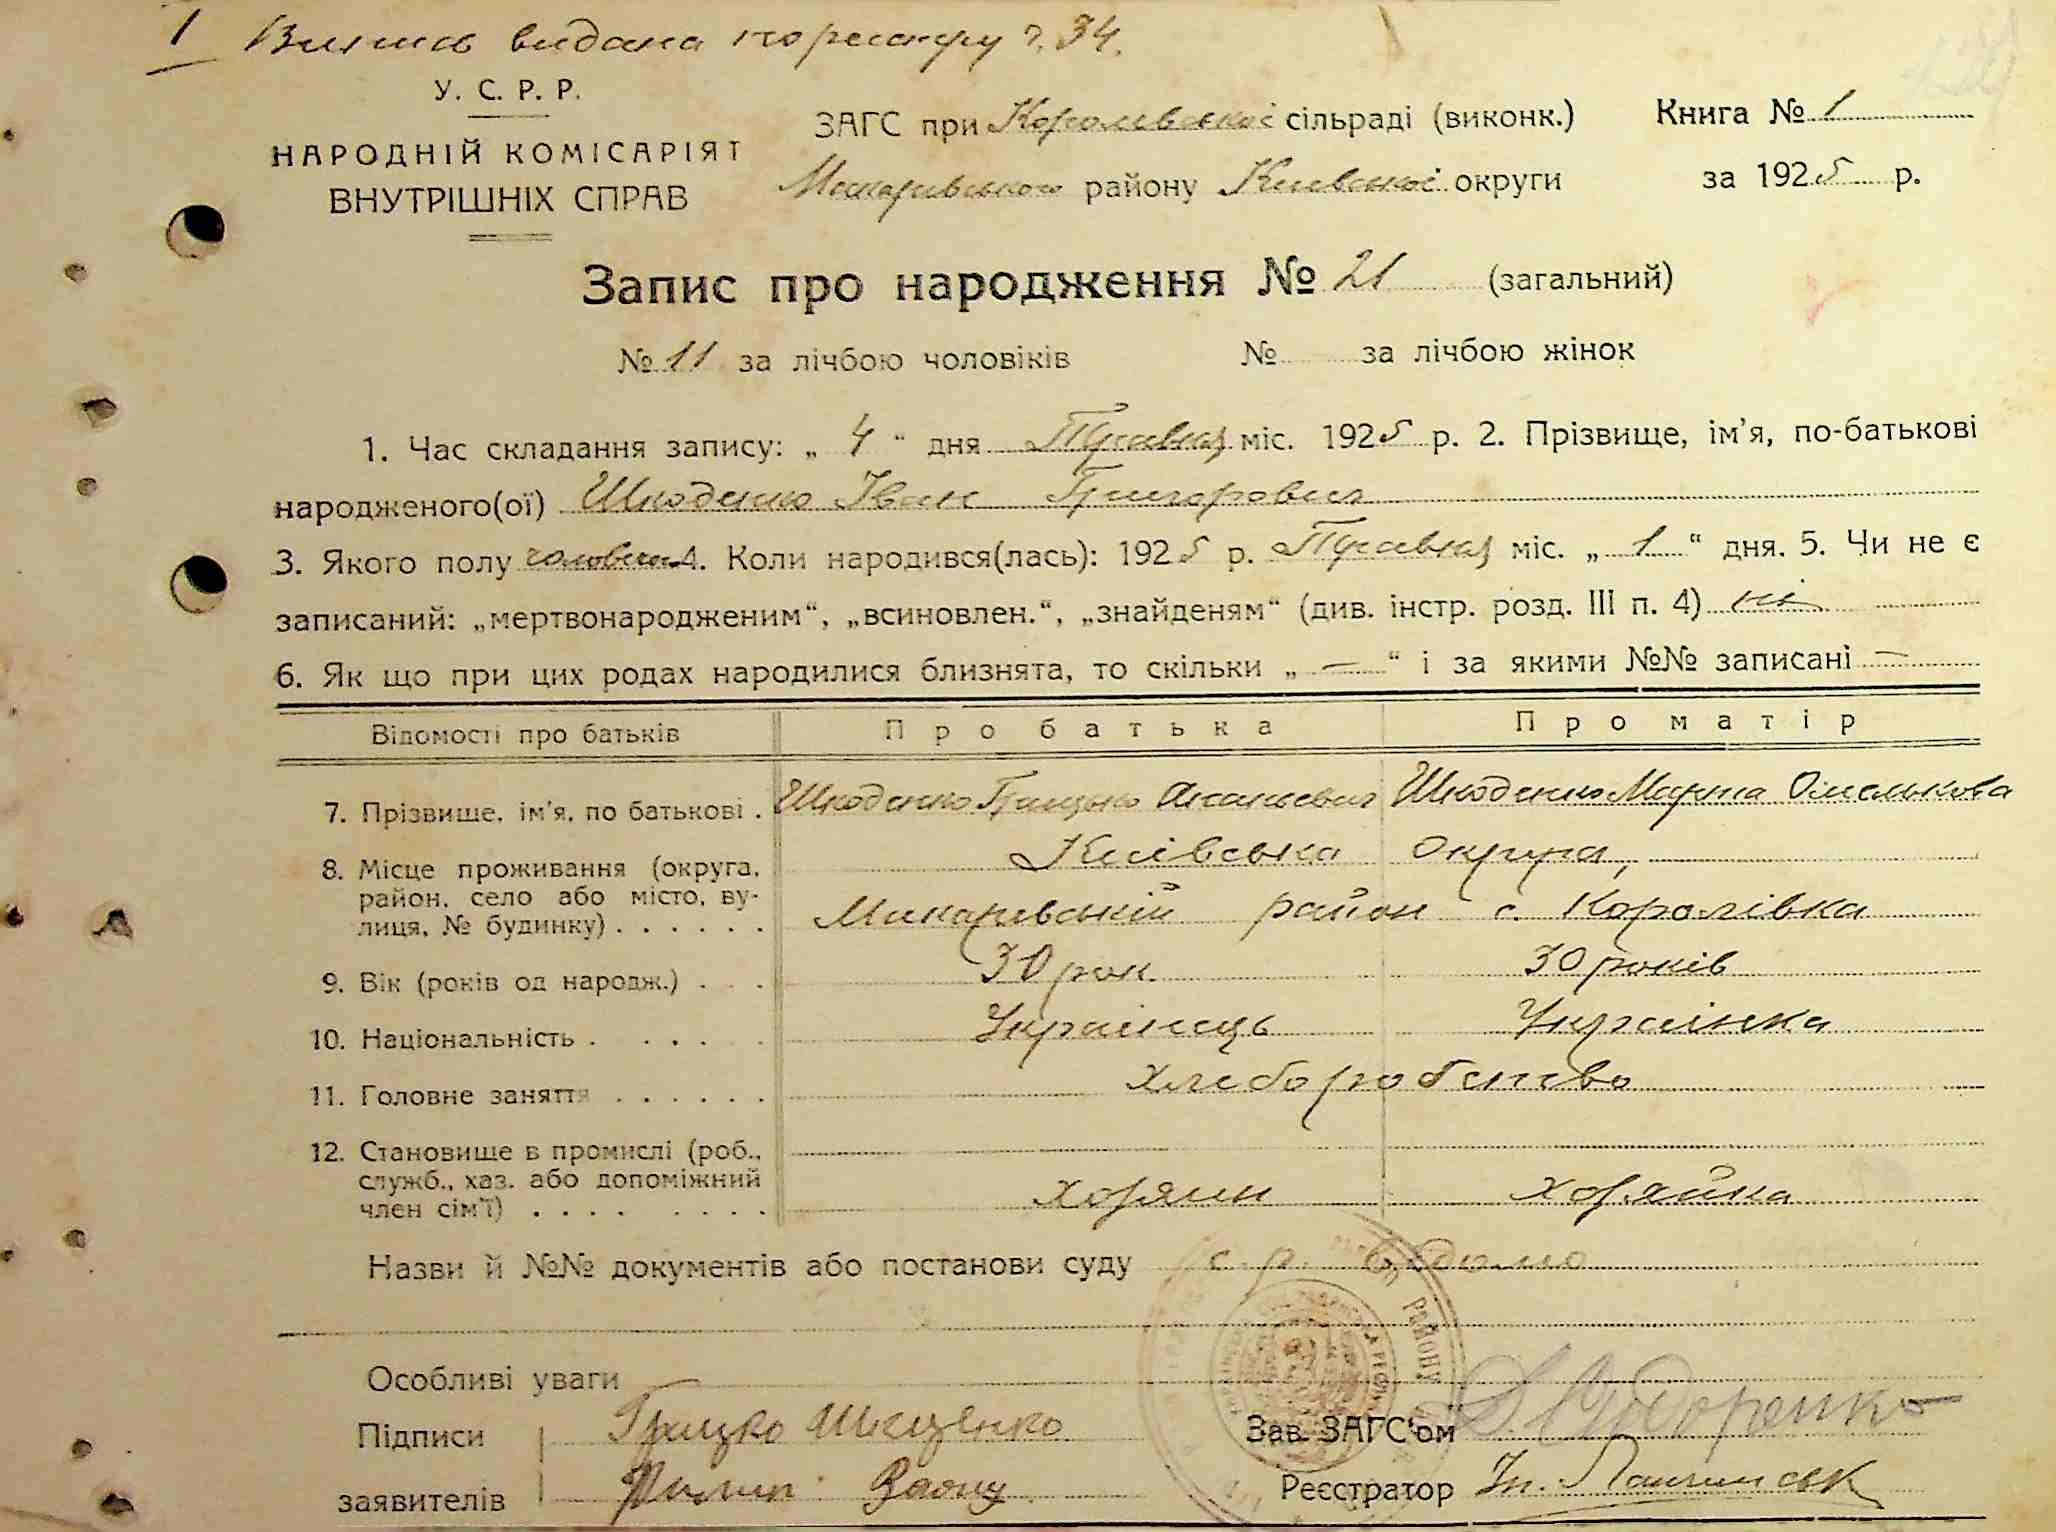 1 Випись видана по реєстру ч. 34.
У. С. Р. Р.
НАРОДНІЙ КОМІСАРІЯТ
ВНУТРІШНІХ СПРАВ
ЗАГС при Королівської сільраді (виконк.)
Макарівського району Київської округи
Книга № 1
за 1925 р.
Запис про народження № 21 (загальний)
№ 11 за лічбою чоловіків № за лічбою жінок
1. Час складання запису: „ 4 “ дня Травня міс. 1925 р. 2. Прізвище, ім’я, по-батькові
народженого(ої) Шкоденко Іван Григорович
3. Якого полу 4. Коли народився(лась): 1925 р. Травня міс. „ 1 “ дня. 5. Чи не є
записаний: „мертвонародженим“, „всиновлен.“, „знайденям“ (див. інстр. розд. III п. 4) ні
6. Як що при цих родах народилися близнята, то скільки „ — “ і за якими №№ записані —
Відомості про батьків Про батька Про матір
7. Прізвище, ім’я, по батькові . Шкоденко Грицько Ананьевич Шкоденко Марта Омелькова
8. Місце проживання (округа, район, село або місто, ву-
лиця, № будинку) . . . . . .
Київська Округа,
Макарівській район с. Королівка
9. Вік (років од народж.) . . . 30 рок 30 років
10. Національність . . . . . Українець Українка
11. Головне заняття . . . . . . Хлеборобство
12. Становище в промислі (роб.,
служб., хаз. або допоміжний
член сім’ї) . . . . . . . . хозяин хозяйка
Назви й №№ документів або постанови суду с. р. відомо
Особливі уваги
Підписи Грицко
заявителів Пилип
Зав. ЗАГС’ом Сидоренко
Реєстратор
району